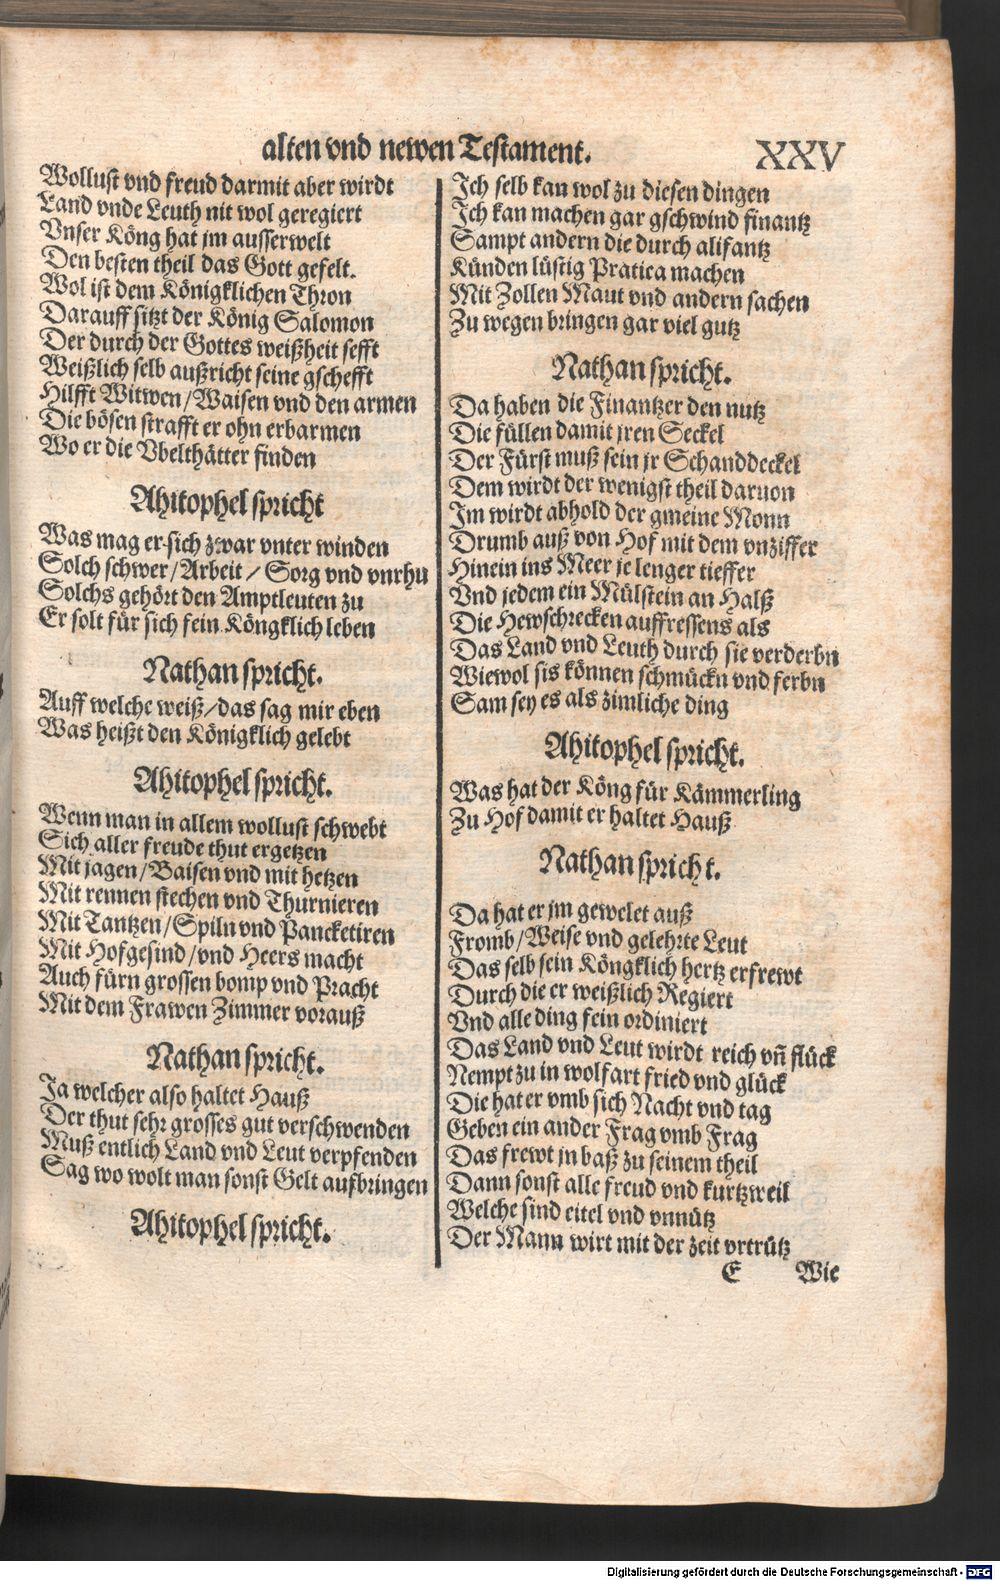 alten vnd newen Testament. XXV
Wollust vnd freud darmit aber wirdt
Land vnde Leuth nit wol geregiert
Vnser Köng hat jm ausserwelt
Den besten theil das Gott gefelt.
Wol ist dem Königklichen Thron
Darauff sitzt der König Salomon
Der durch der Gottes weißheit sefft
Weißlich selb außricht seine gschefft
Hilfft Witwen/Waisen vnd den armen
Die bösen strafft er ohn erbarmen
Wo er die Vbelthätter finden
Ahitophel spricht
Was mag er sich zwar vnter winden
Solch schwer/Arbeit/Sorg vnd vnrhu
Solchs gehört den Amptleuten zu
Er solt für sich fein Köngklich leben
Nathan spricht.
Auff welche weiß/das sag mir eben
Was heißt den Königklich gelebt
Ahitophel spricht.
Wenn man in allem wollust schwebt
Sich aller freude thut ergetzen
Mit jagen/Baisen vnd mit hetzen
Mit rennen stechen vnd Thurnieren
Mit Tantzen/Spiln vnd Pancketiren
Mit Hofgesind/vnd Heers macht
Auch fürn grossen bomp vnd Pracht
Mit dem Frawen Zimmer vorauß
Nathan spricht.
Ja welcher also haltet Hauß
Der thut sehr grosses gut verschwenden
Muß entlich Land vnd Leut verpfenden
Sag wo wolt man sonst Gelt aufbringen
Ahitophel spricht.
Ich selb kan wol zu diesen dingen
Ich kan machen gar gschwind finantz
Sampt andern die durch alifantz
Künden lüstig Pratica machen
Mit Zollen Maut vnd andern sachen
Zu wegen bringen gar viel gutz
Nathan spricht.
Da haben die Finantzer den nutz
Die füllen damit jren Seckel
Der Fürst muß sein jr Schanddeckel
Dem wirdt der wenigst theil daruon
Im wirdt abhold der gmeine Monn
Drumb auß von Hof mit dem vnziffer
Hinein ins Meer je lenger tieffer
Vnd jedem ein Mülstein an Halß
Die Hewschrecken auffressens als
Das Land vnd Leuth durch sie verderbn
Wiewol sis können schmückn vnd ferbn
Sam sey es als zimliche ding
Ahitophel spricht.
Was hat der Köng für Kämmerling
Zu Hof damit er haltet Hauß
Nathan spricht.
Da hat er jm gewelet auß
Fromb/Weise vnd gelehrte Leut
Das selb sein Köngklich hertz erfrewt
Durch die er weißlich Regiert
Vnd alle ding fein ordiniert
Das Land vnd Leut wirdt reich vñ flück
Nempt zu in wolfart fried vnd glück
Die hat er vmb sich Nacht vnd tag
Geben ein ander Frag vmb Frag
Das frewt jn baß zu seinem theil
Dann sonst alle freud vnd kurtzweil
Welche sind eitel vnd vnnütz
Der Mann wirt mit der zeit vrtrütz
E Wie
Digitalisierung gefördert durch die Deutsche Forschungsgemeinschaft - DFG